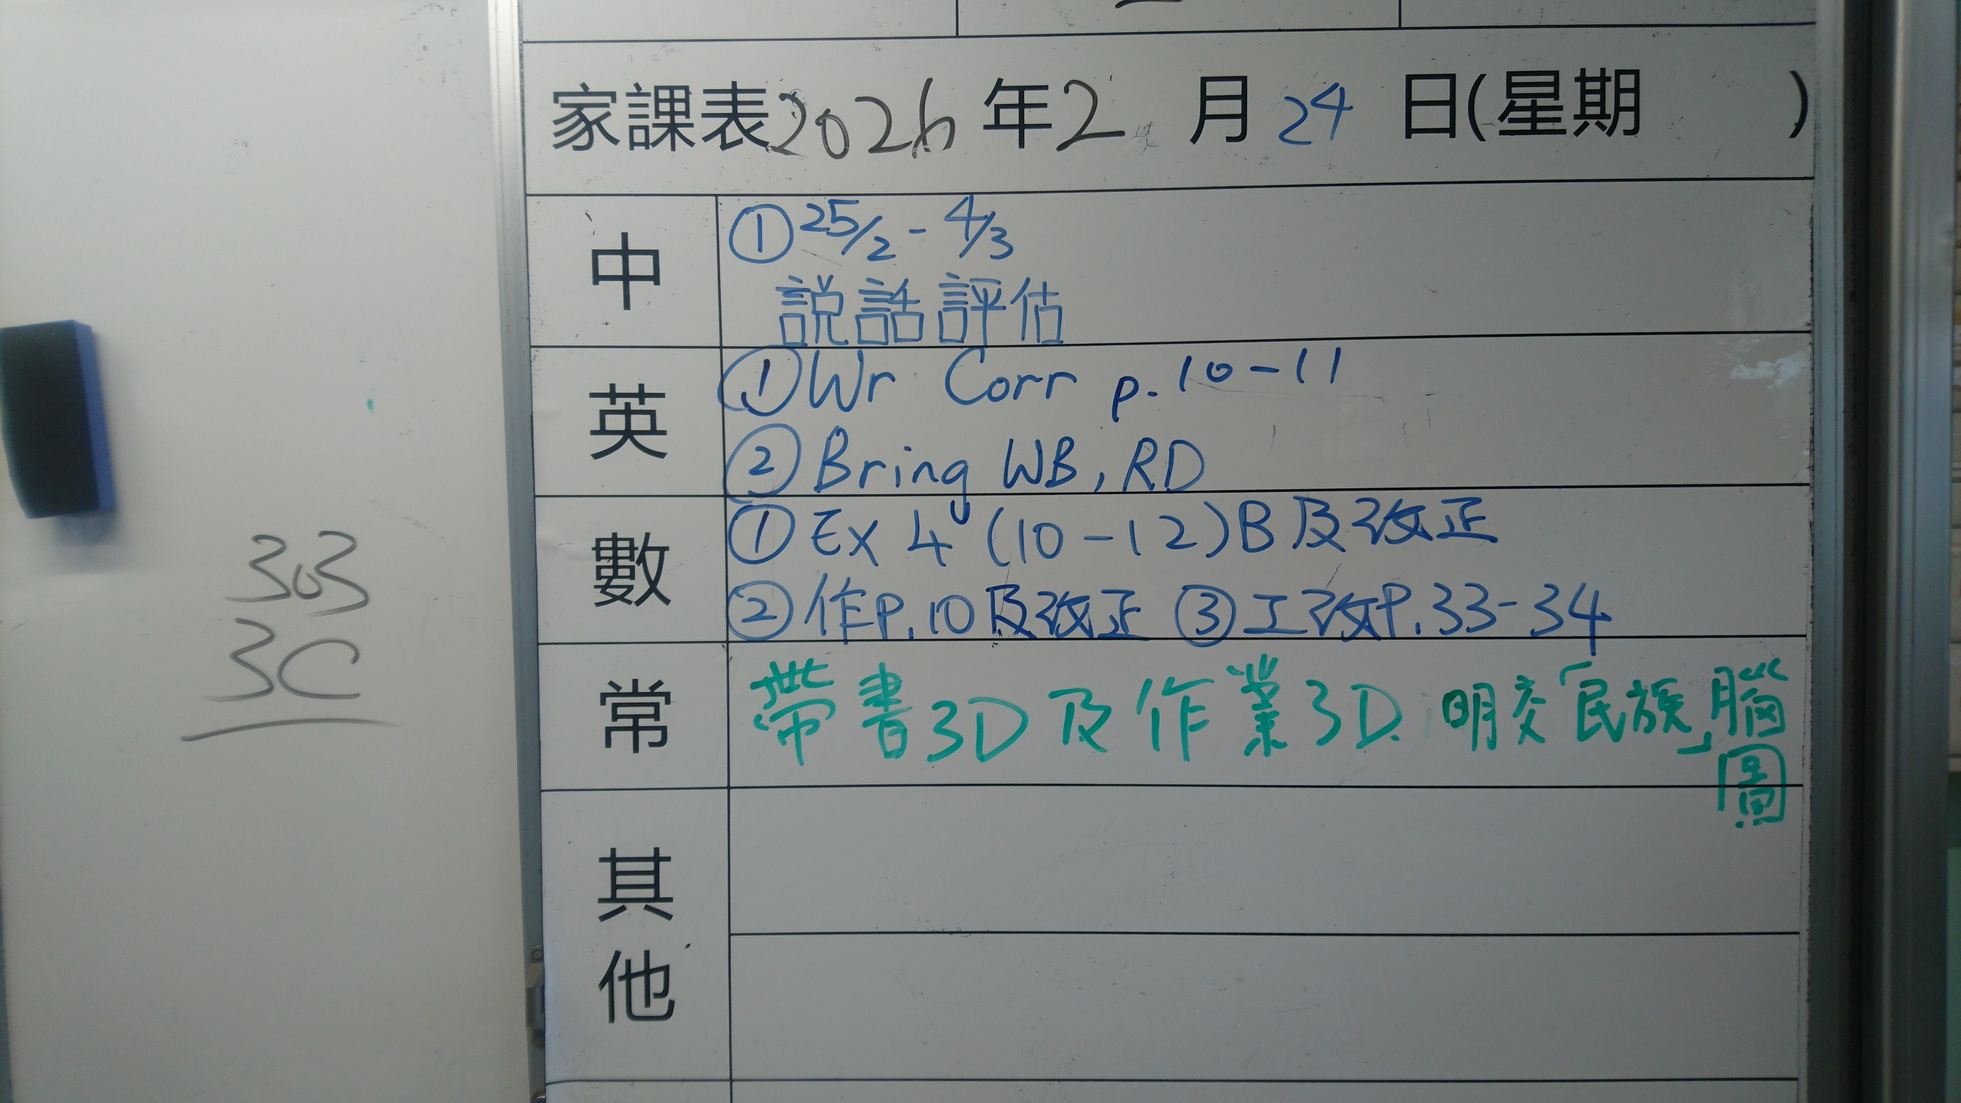 家課表2026年2月24日(星期 )
中
①25/2-4/3
説話評估
英
①Wr Corr p.10-11
②Bring WB, RD
數
①Ex 4 (10-12)B及改正
②作P.10及改正 ③工改P.33-34
常
帶書3D及作業3D.明交「民族」腦
圖
其
他
303
3C